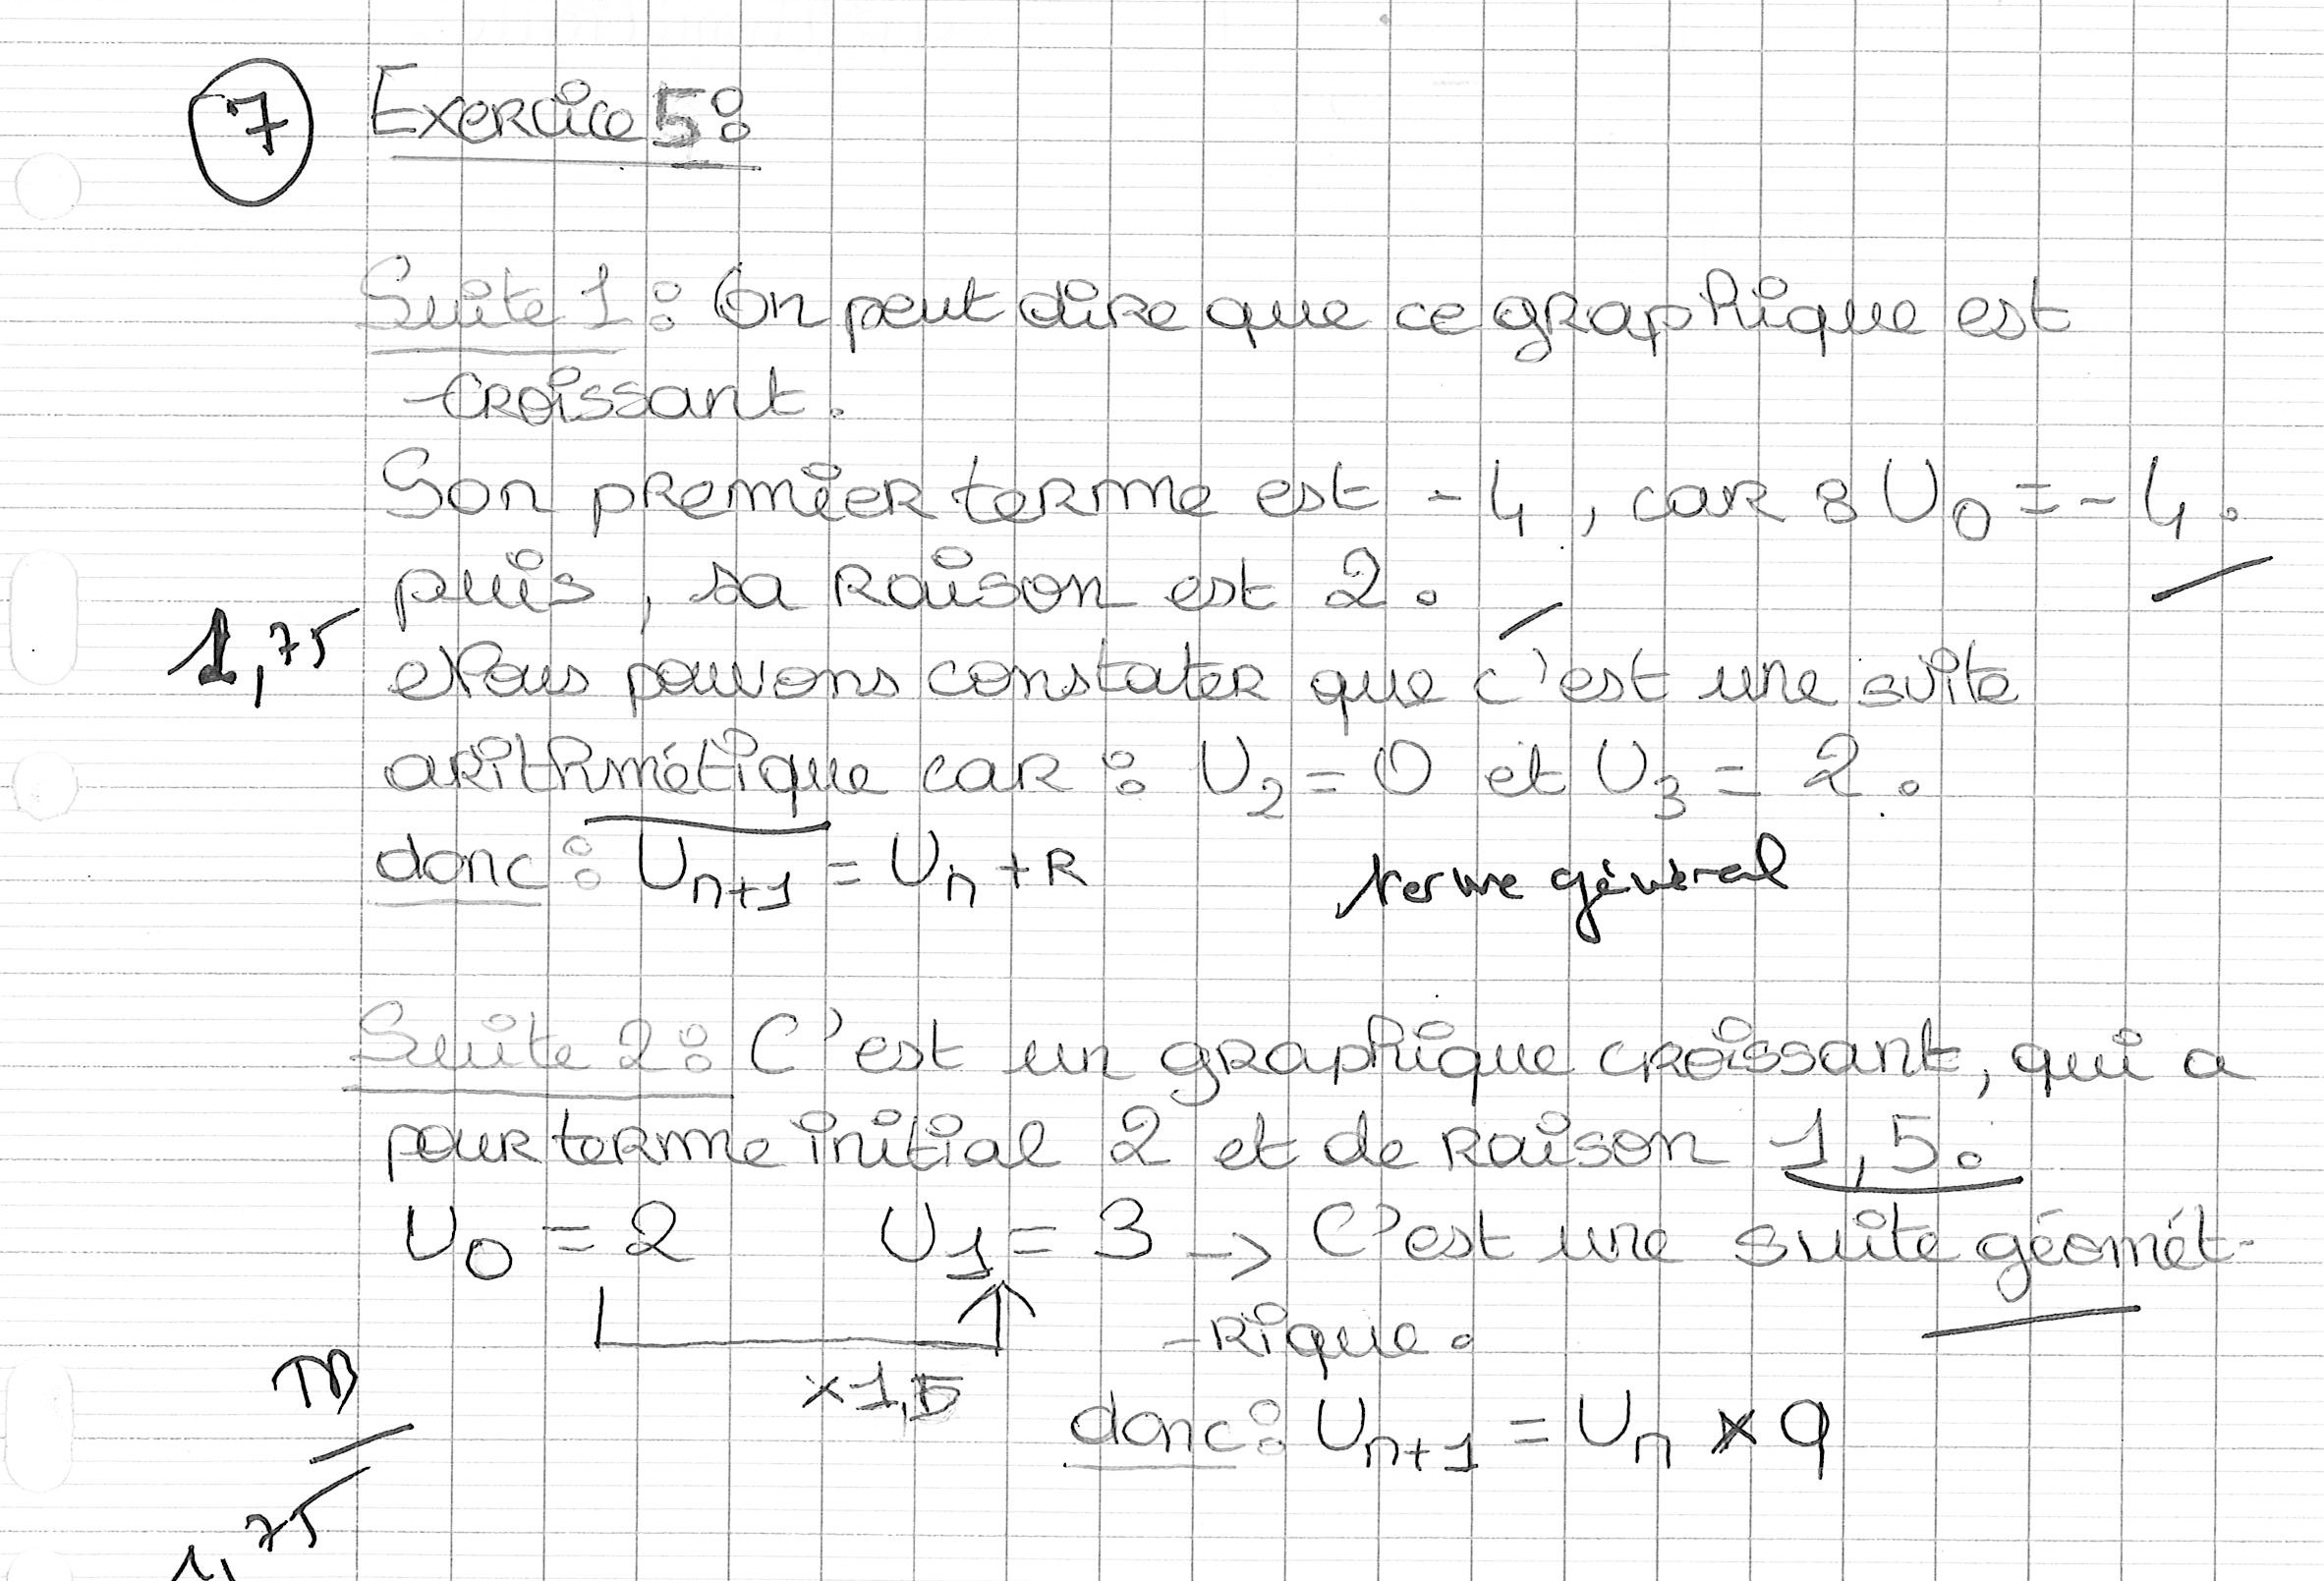 7 Exercice 5:
Suite 1: On peut dire que ce graphique est
croissant.
Son premier terme est -4, car: U0 = -4.
puis, sa raison est 2.
1,75
Nous pouvons constater que c'est une suite
arithmétique car: U2 = 0 et U3 = 2.
donc: Un+1 = Un + R
terme général
Suite 2: C'est un graphique croissant, qui a
pour terme initial 2 et de raison 1,5.
U0 = 2 U1 = 3 -> C'est une suite géomét-
-rique.
TB
×1,5
donc: Un+1 = Un × q
1,75